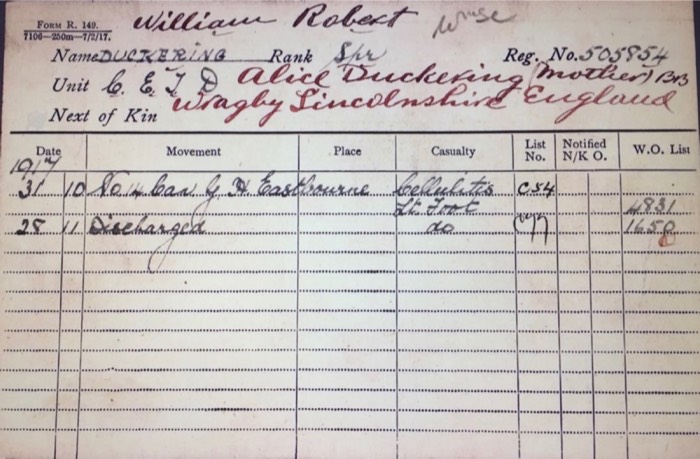 FORM R. 149.
7106—250m—7/2/17.
William Robert
Name DUCKERING Rank Spr Reg. No. 505854
Unit C. E. T. D Alice Duckering (Mother)
Next of Kin Wragby Lincolnshire England
Date Movement Place Casualty List No. Notified N/K O. W.O. List
1917
31 10 No 14 Can G H Eastbourne Cellulitis C54
Lt. Foot 4831
28 11 Discharged do C77 1650